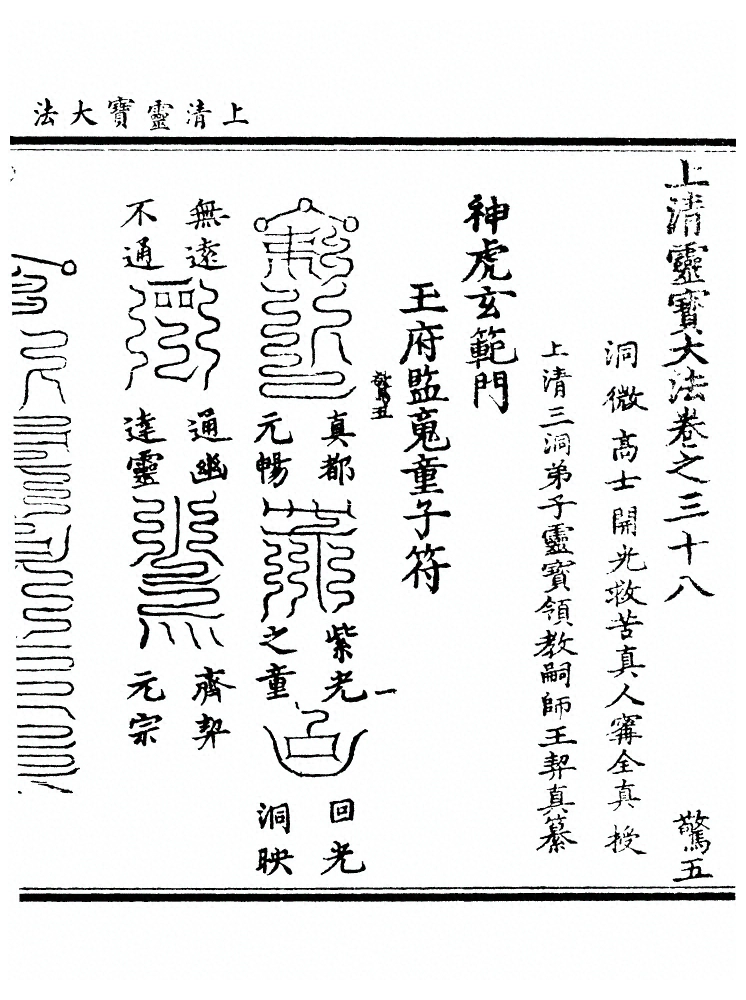 上清靈寶大法
上清靈寶大法卷之三十八 驚五
洞微高士開光救苦真人寗全真授
上清三洞弟子靈寶領教嗣師王契真纂
神虎玄範門
玉府監䰟童子符
驚五 一
真都元暢
紫光之童
回光洞映
無遠不通
通幽達靈
齊契元宗